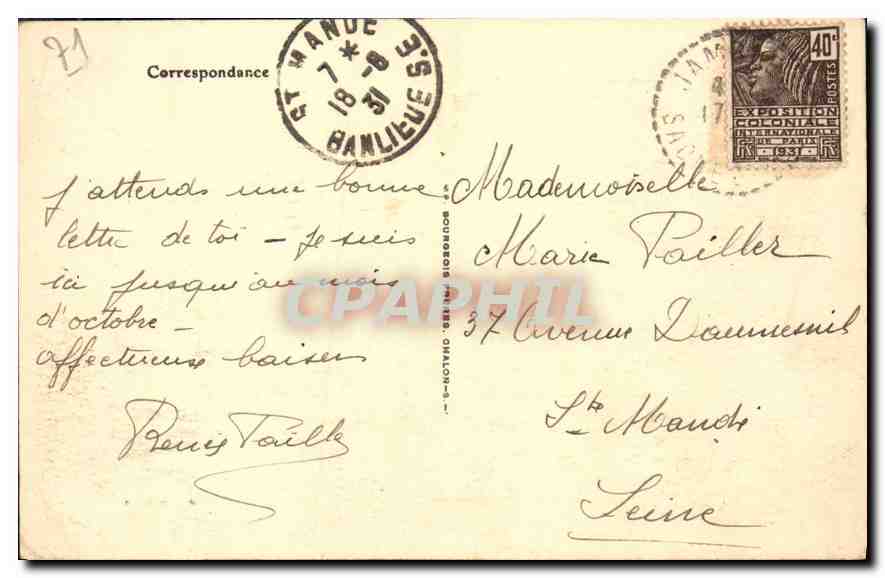 71
Correspondance
ST MANDE
7 - 8
18 31
BANLIEUE S.E.
JAM
4
17
40c
POSTES
EXPOSITION
COLONIALE
INTERNATIONALE
DE PARIS
1931
J'attends une bonne
lettre de toi - Je suis
ici jusqu'au mois
d'octobre -
affectueux baisers
CPAPHIL
BOURGEOIS FRÈRES, CHALON-S.-
Mademoiselle
Marie Pailler
37 Avenue Daumesnil
St Mandé
Seine